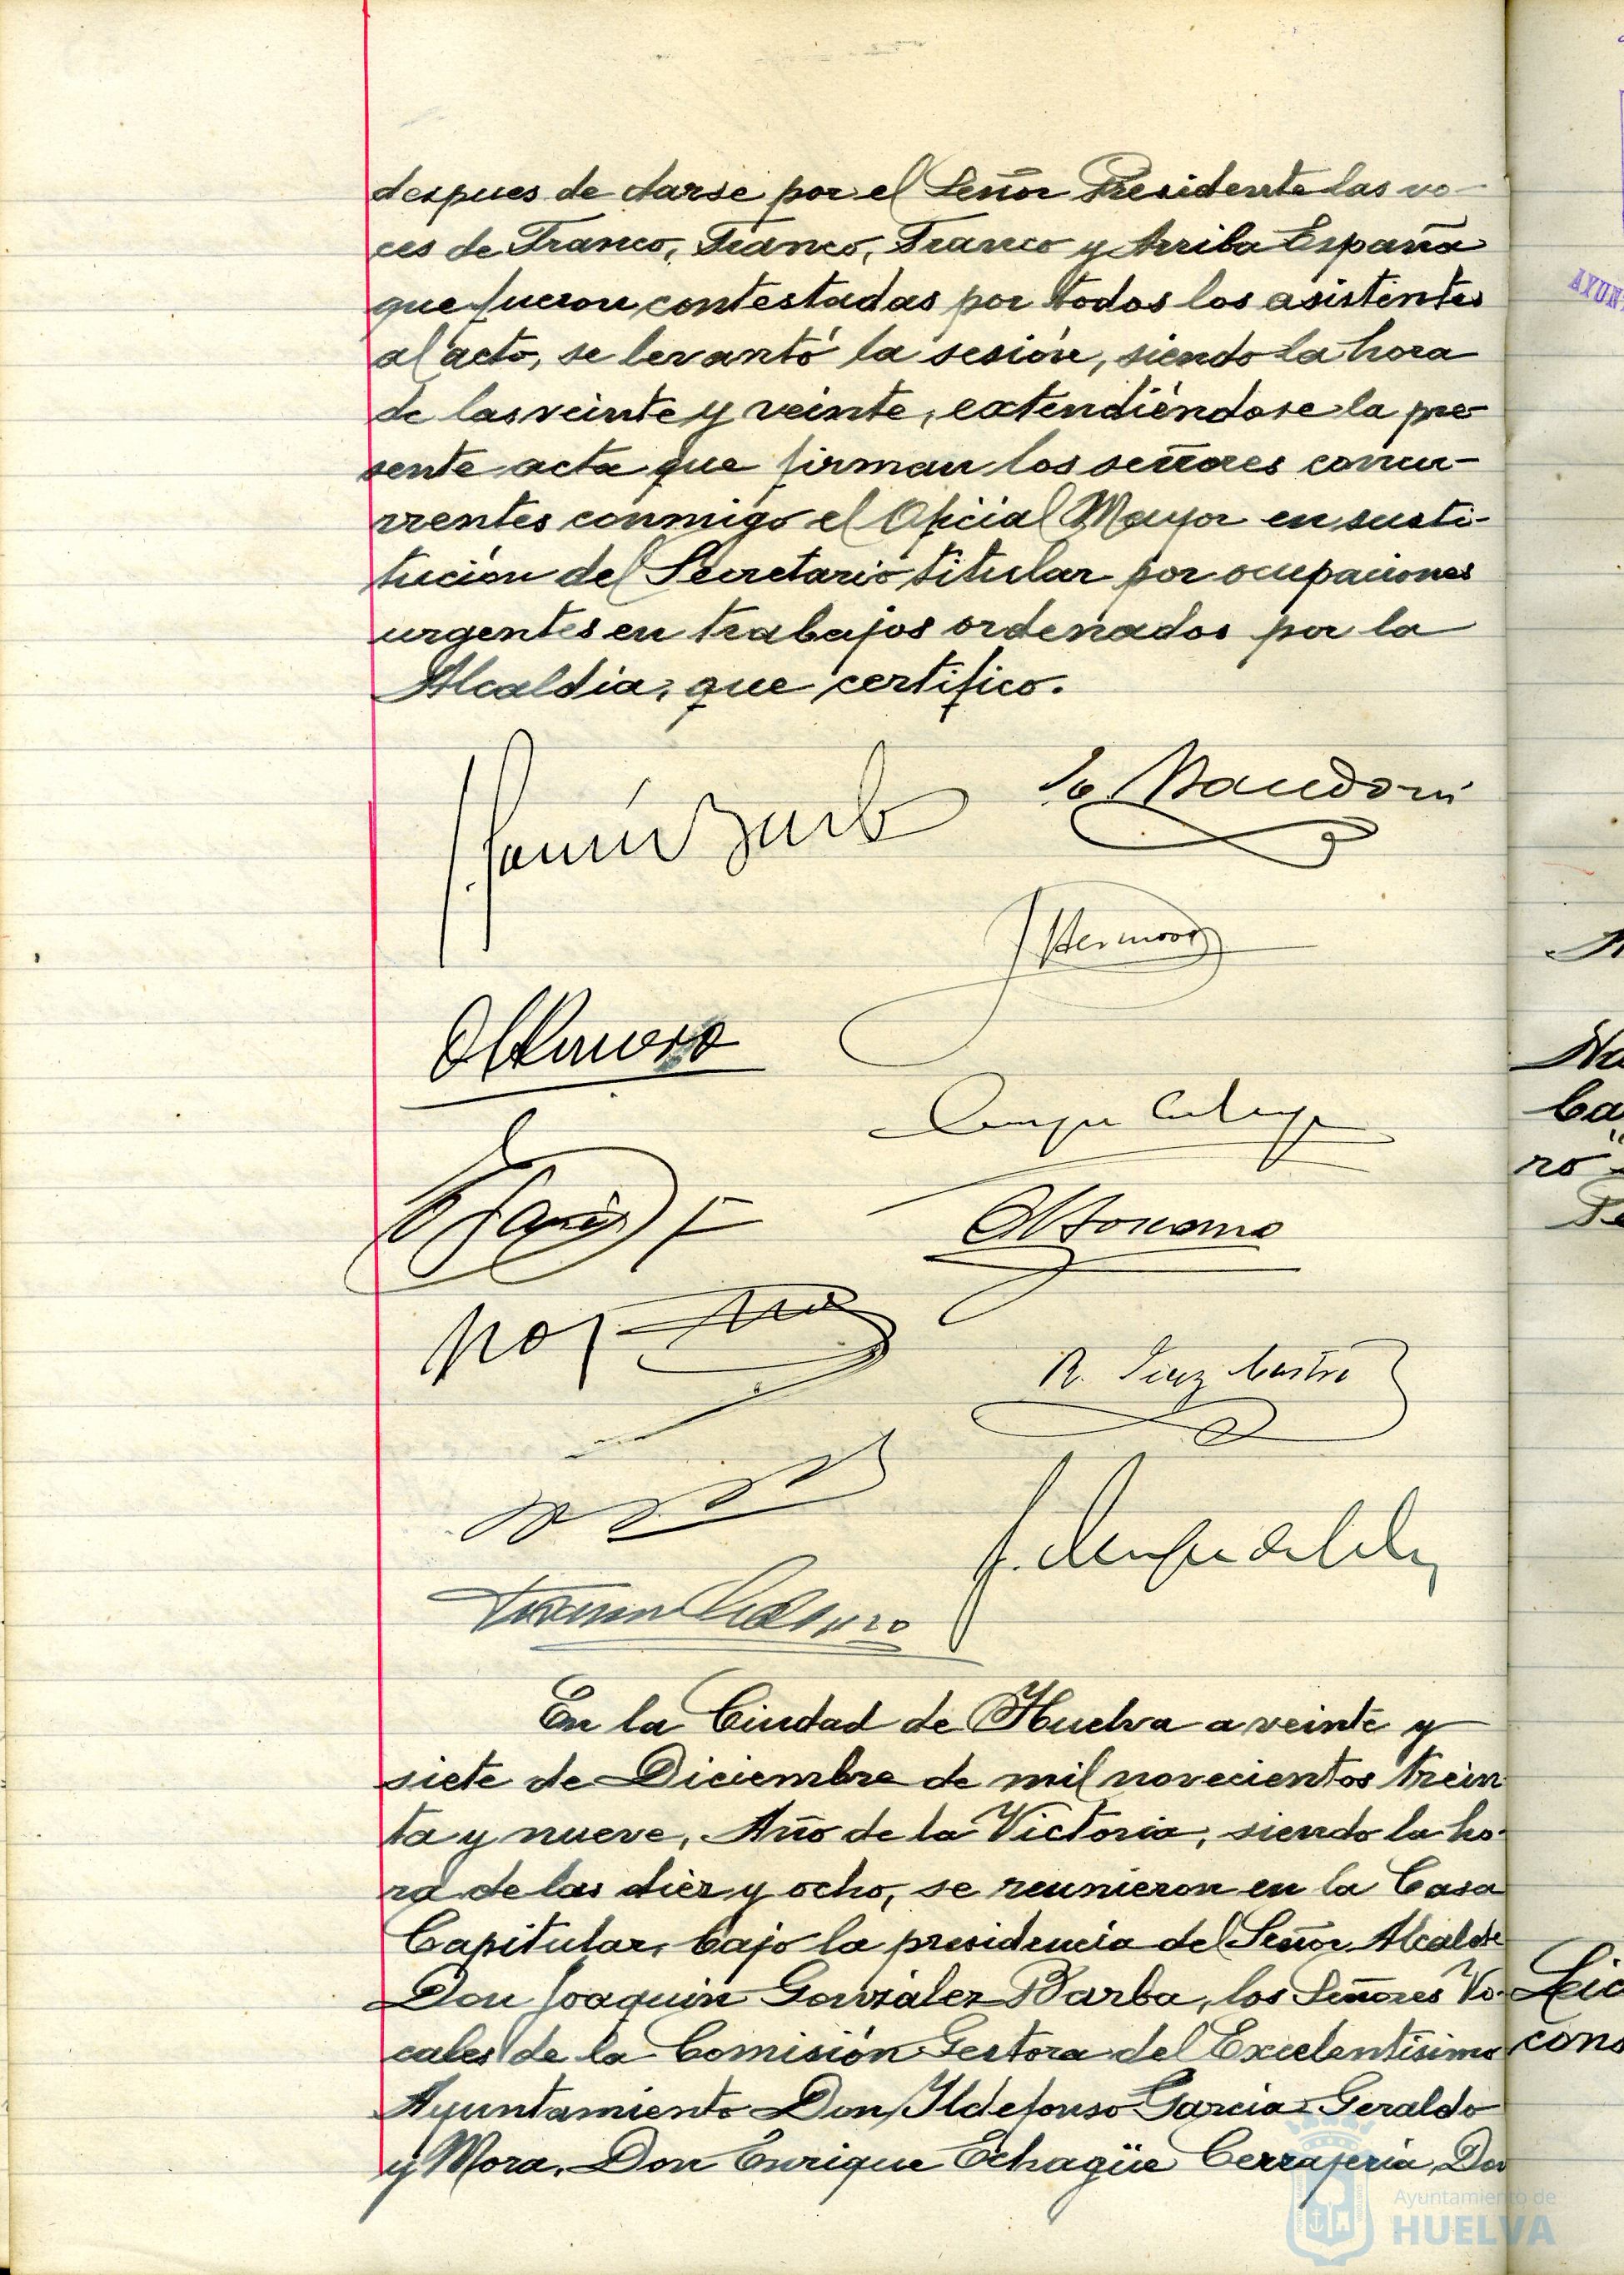 despues de darse por el Señor Presidente las vo-
ces de Franco, Franco, Franco y Arriba España
que fueron contestadas por todos los asistentes
al acto, se levantó la sesión, siendo la hora
de las veinte y veinte, extendiéndose la pre-
sente acta que firman los señores concu-
rrentes conmigo el Oficial Mayor en susti-
tución del Secretario titular por ocupaciones
urgentes en trabajos ordenados por la
Alcaldia, que certifico.
R. Diaz Castro
En la Ciudad de Huelva a veinte y
siete de Diciembre de mil novecientos trein
ta y nueve, Año de la Victoria, siendo la ho-
ra de las diez y ocho, se reunieron en la Casa
Capitular, bajo la presidencia del Señor Alcalde
Don Joaquin González Barba, los Señores Vo-
cales de la Comisión Gestora del Excelentisimo
Ayuntamiento Don Ildefonso Garcia-Geraldo
y Mora, Don Enrique Echagüe Cerrajeria, Don
Ayuntamiento de
HUELVA